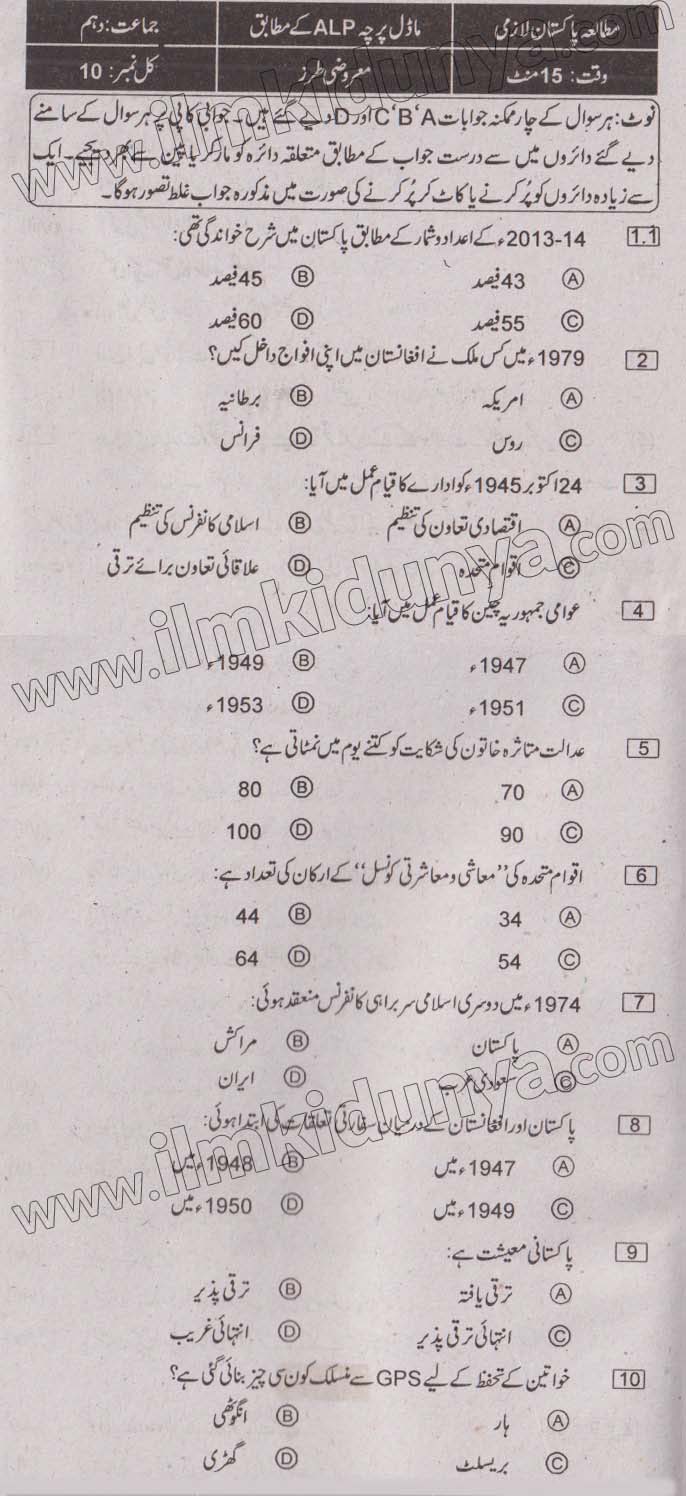 مطالعہ پاکستان لازمی
ماڈل پرچہ ALP کے مطابق
جماعت: دہم
وقت: 15 منٹ
معروضی طرز
کل نمبر: 10
نوٹ: ہر سوال کے چار ممکنہ جوابات A‘ B‘ C اور D دیے گئے ہیں۔ جوابی کاپی پر ہر سوال کے سامنے
دیے گئے دائروں میں سے درست جواب کے مطابق متعلقہ دائرہ کو مارکر یا پین سے بھر دیجیے۔ ایک
سے زیادہ دائروں کو پُر کرنے یا کاٹ کر پُر کرنے کی صورت میں مذکورہ جواب غلط تصور ہوگا۔
1.1 2013-14ء کے اعداد و شمار کے مطابق پاکستان میں شرح خواندگی تھی:
A 43 فیصد B 45 فیصد
C 55 فیصد D 60 فیصد
2 1979ء میں کس ملک نے افغانستان میں اپنی افواج داخل کیں؟
A امریکہ B برطانیہ
C روس D فرانس
3 24 اکتوبر 1945ء کو ادارے کا قیام عمل میں آیا:
A اقتصادی تعاون کی تنظیم B اسلامی کانفرنس کی تنظیم
C اقوام متحدہ D علاقائی تعاون برائے ترقی
4 عوامی جمہوریہ چین کا قیام عمل میں آیا:
A 1947ء B 1949ء
C 1951ء D 1953ء
5 عدالت متاثرہ خاتون کی شکایت کو کتنے یوم میں نمٹاتی ہے؟
A 70 B 80
C 90 D 100
6 اقوام متحدہ کی ”معاشی و معاشرتی کونسل“ کے ارکان کی تعداد ہے:
A 34 B 44
C 54 D 64
7 1974ء میں دوسری اسلامی سربراہی کانفرنس منعقد ہوئی:
A پاکستان B مراکش
C سعودی عرب D ایران
8 پاکستان اور افغانستان کے درمیان سفارتی تعلقات کی ابتدا ہوئی:
A 1947ء میں B 1948ء میں
C 1949ء میں D 1950ء میں
9 پاکستانی معیشت ہے:
A ترقی یافتہ B ترقی پذیر
C انتہائی ترقی پذیر D انتہائی غریب
10 خواتین کے تحفظ کے لیے GPS سے منسلک کون سی چیز بنائی گئی ہے؟
A ہار B انگوٹھی
C بریسلٹ D گھڑی
www.ilmkidunya.com
www.ilmkidunya.com
www.ilmkidunya.com